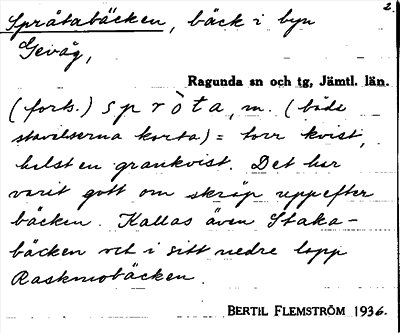 2.
Språtabäcken, bäck i byn
Gevåg,
Ragunda sn och tg, Jämtl. län.
(forts.) spròta, m. (båda
stavelserna korta) = torr kvist,
helst en grankvist. Det har
varit gott om skräp uppefter
bäcken. Kallas även Staka-
bäcken och i sitt nedre lopp
Raskmobäcken.
BERTIL FLEMSTRÖM 1936.